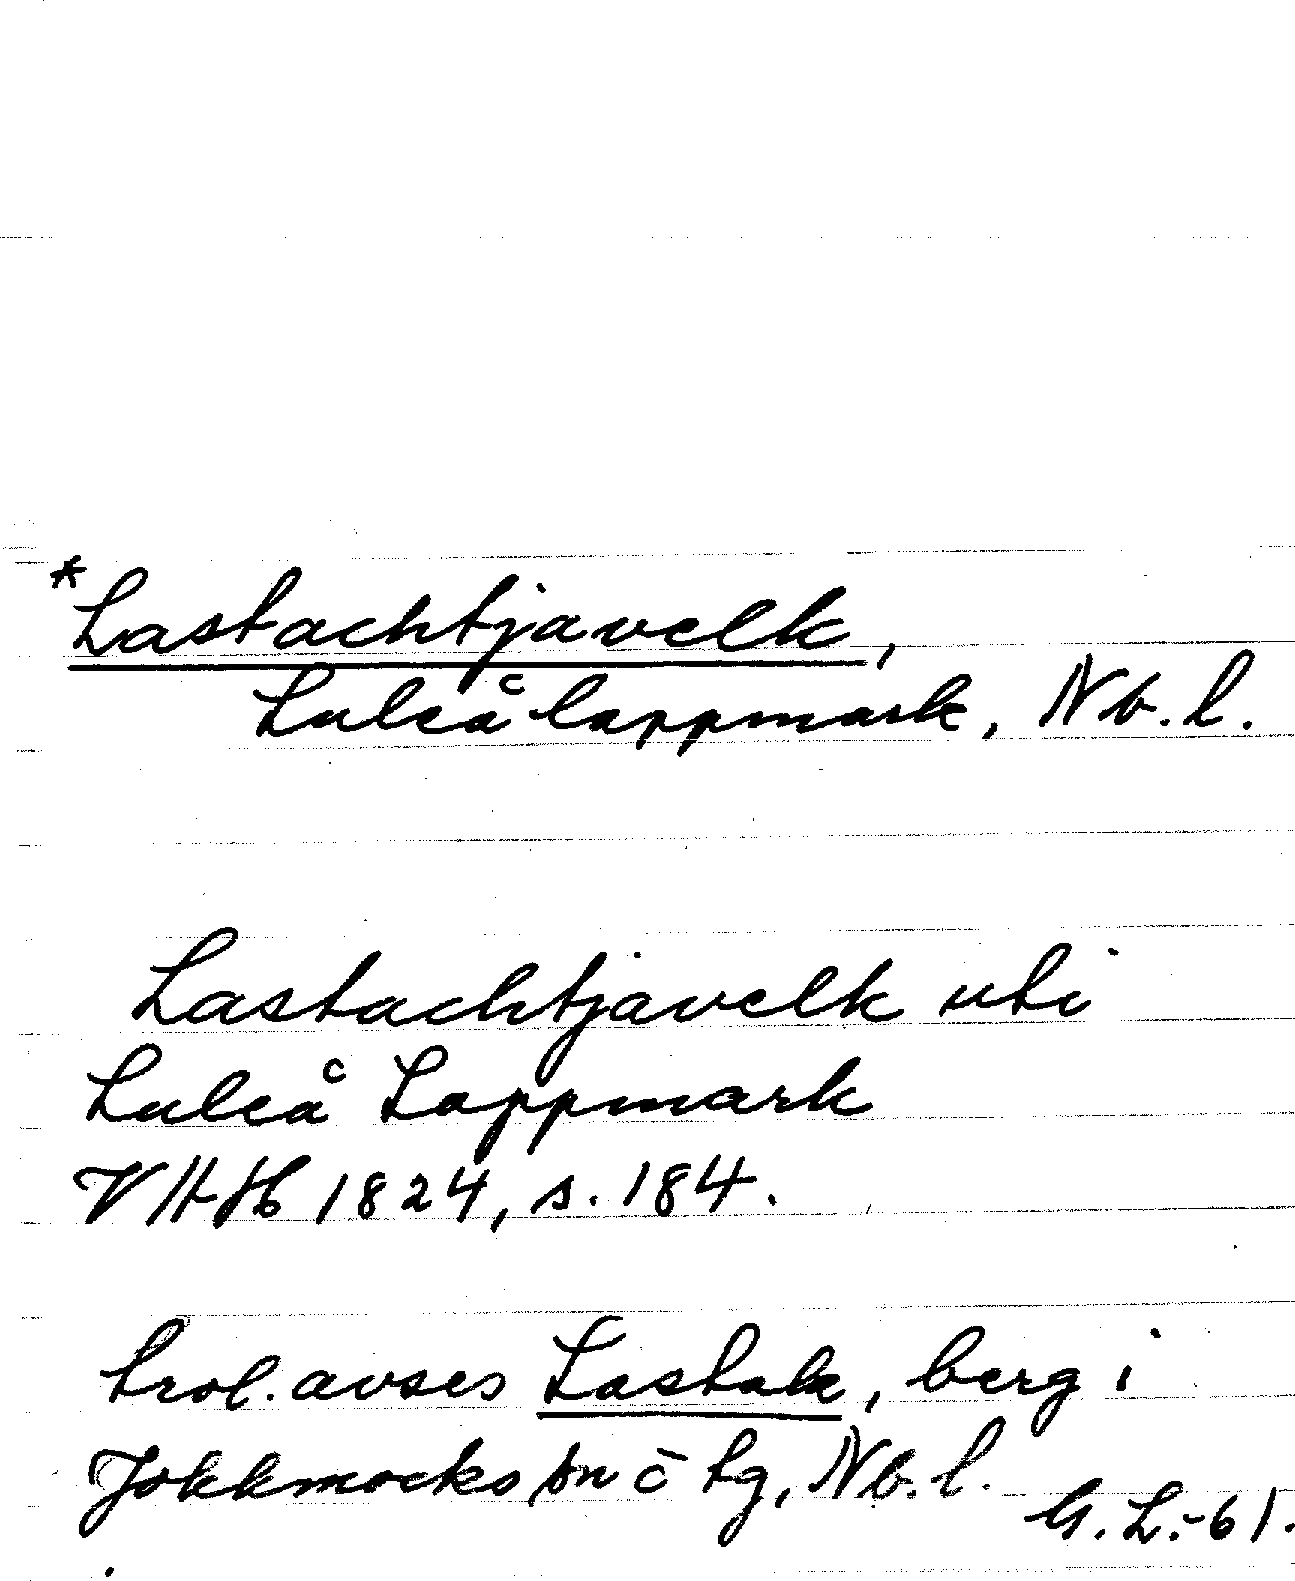 *Lastachtjavelk,
Luleå lappmark, Nb. l.
Lastachtjavelk uti
Luleå Lappmark
VHH 1824, s. 184.
trol. avses Lastak, berg i
Jokkmocks sn o tg, Nb. l.
G. L:-61.